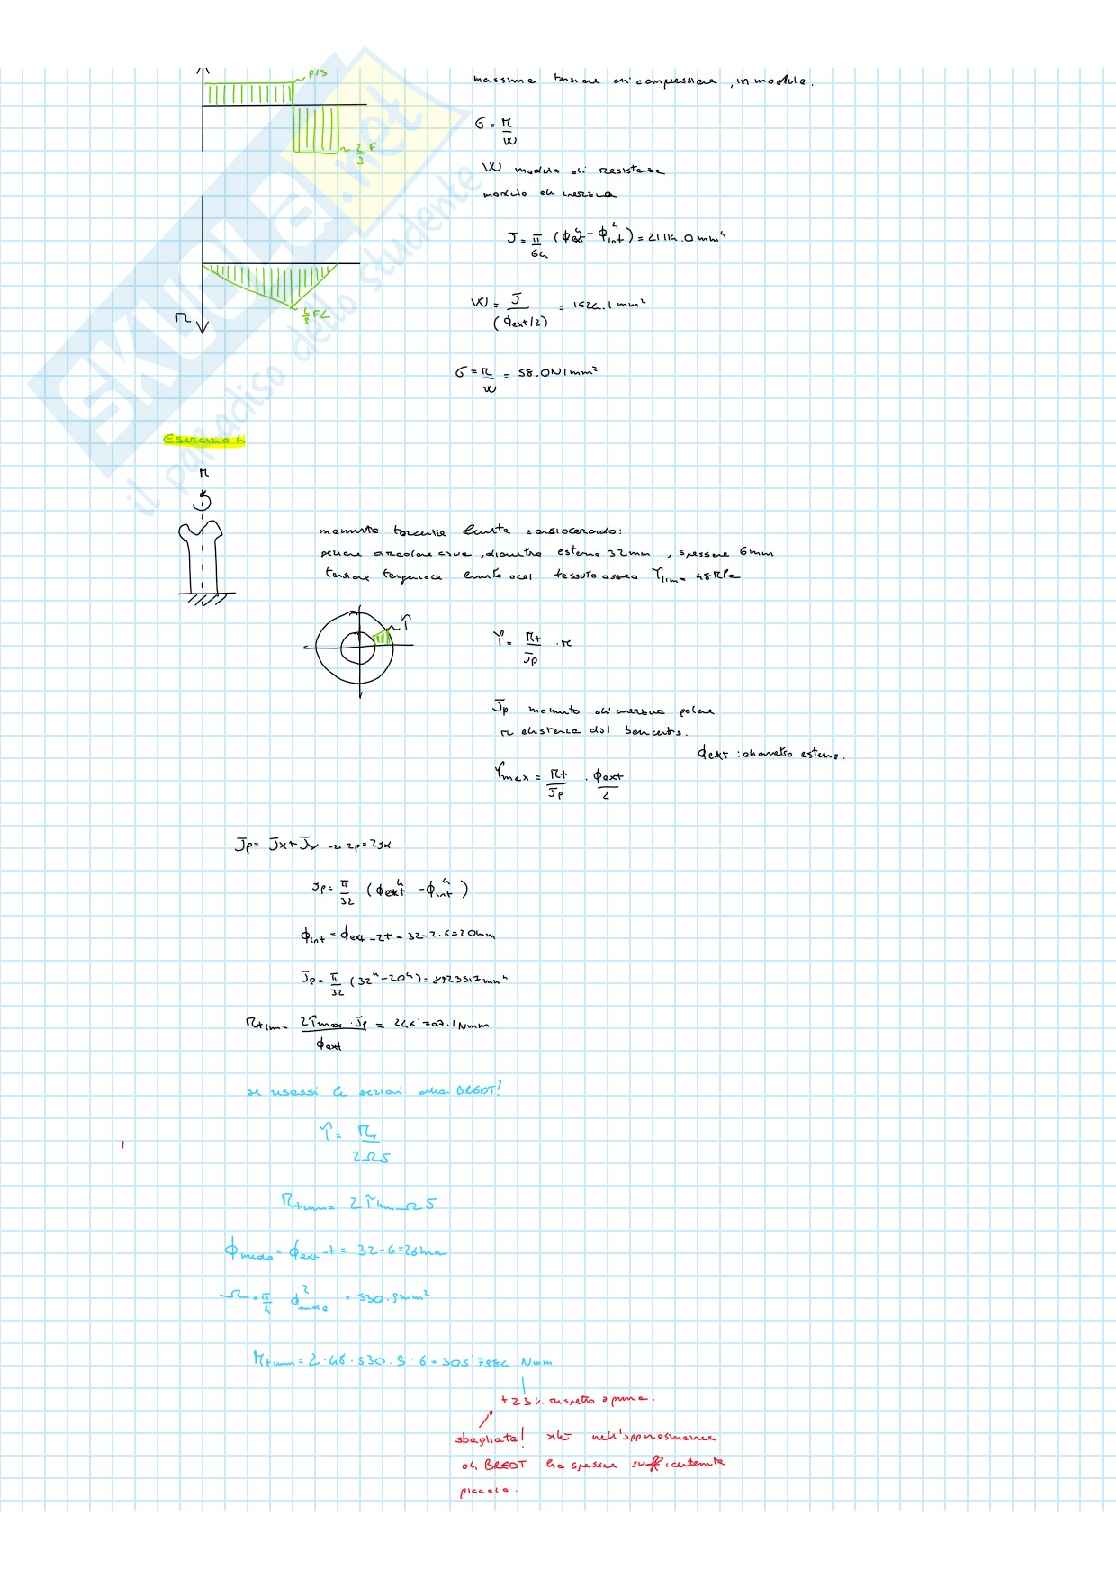 F/3
2/3 F
M
massima tensione di compressione, in modulo.
σ = M/W
W modulo di resistenza
modulo di inerzia
J = π/64 (ϕext⁴ - ϕint⁴) =
W = J/(dext/2) =
σ = M/W = 58.0 N/mm²
SKUOLA.net
il paradiso dello studente
Esercizio
M
momento torcente limite considerando:
sezione circolare cava, diametro esterno 32mm, spessore 6mm
tensione tangenziale limite del tessuto osseo τlim = 48 MPa
τ
τ = Mt/Jp · r
Jp momento di inerzia polare
r distanza dal baricentro.
dext : diametro esterno.
τmax = Mt/Jp · ϕext/2
Jp = Jx + Jy
Jp = π/32 (ϕext⁴ - ϕint⁴)
ϕint = dext - 2t = 32 - 2·6 = 20mm
Jp = π/32 (32⁴ - 20⁴) = mm⁴
Mtlim = 2τmax · Jp / ϕext = Nmm
se usassi le sezioni alla BREDT!
τ = Mt/2ΩS
Mtlim = 2τlim Ω S
ϕmedio = ϕext - t = 32 - 6 = 26mm
Ω = π/4 d²medio = 530.9mm²
Mtlim = 2·48·530.9·6 = Nmm
+23% rispetto a prima.
sbagliato! sta nell'approssimazione
di BREDT lo spessore sufficientemente
piccolo.